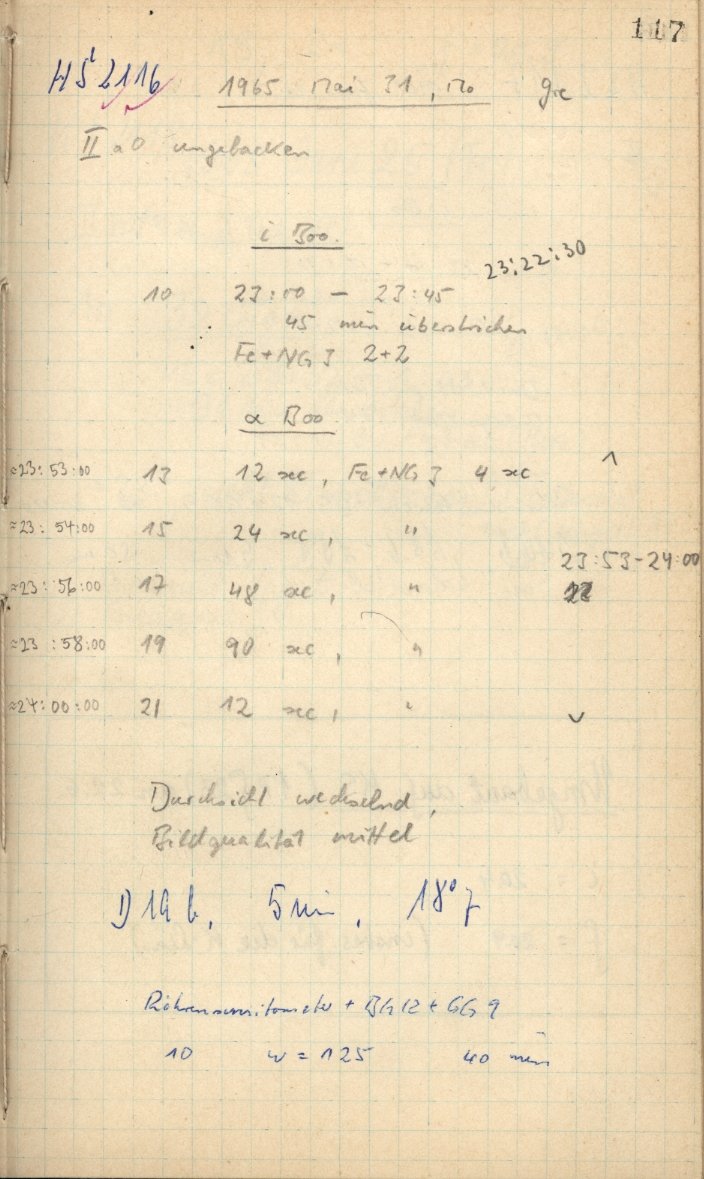 117
HS 2116 1965 Mai 31, Mo gre
II a O ungebacken
i Boo.
23:22:30
10 23:00 — 23:45
45 min überstrichen
Fe+NG3 2+2
α Boo
≈23:53:00 13 12 sec, Fe+NG3 4 sec
≈23:54:00 15 24 sec, "
23:53-24:00
≈23:56:00 17 48 sec, "
≈23:58:00 19 90 sec, "
≈24:00:00 21 12 sec, "
Durchsicht wechselnd,
Bildqualität mittel
D 19 b, 5 min, 18°7
Röhrensensitometer + BG12 + GG9
10 w = 125 40 min